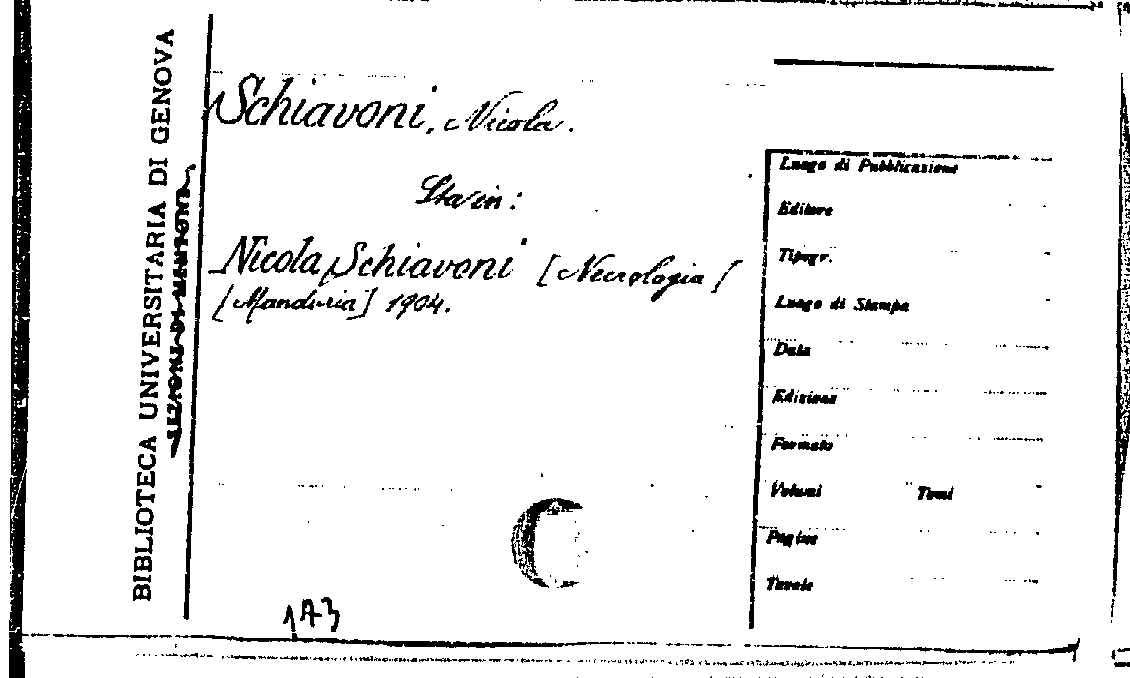 BIBLIOTECA UNIVERSITARIA DI GENOVA
Schiavoni, Nicola.
Sta in:
Nicola Schiavoni [Necrologia]
[Manduria] 1904.
Luogo di Pubblicazione
Editore
Tipogr.
Luogo di Stampa
Data
Edizione
Formato
Volumi Tomi
Pagine
Tavole
173